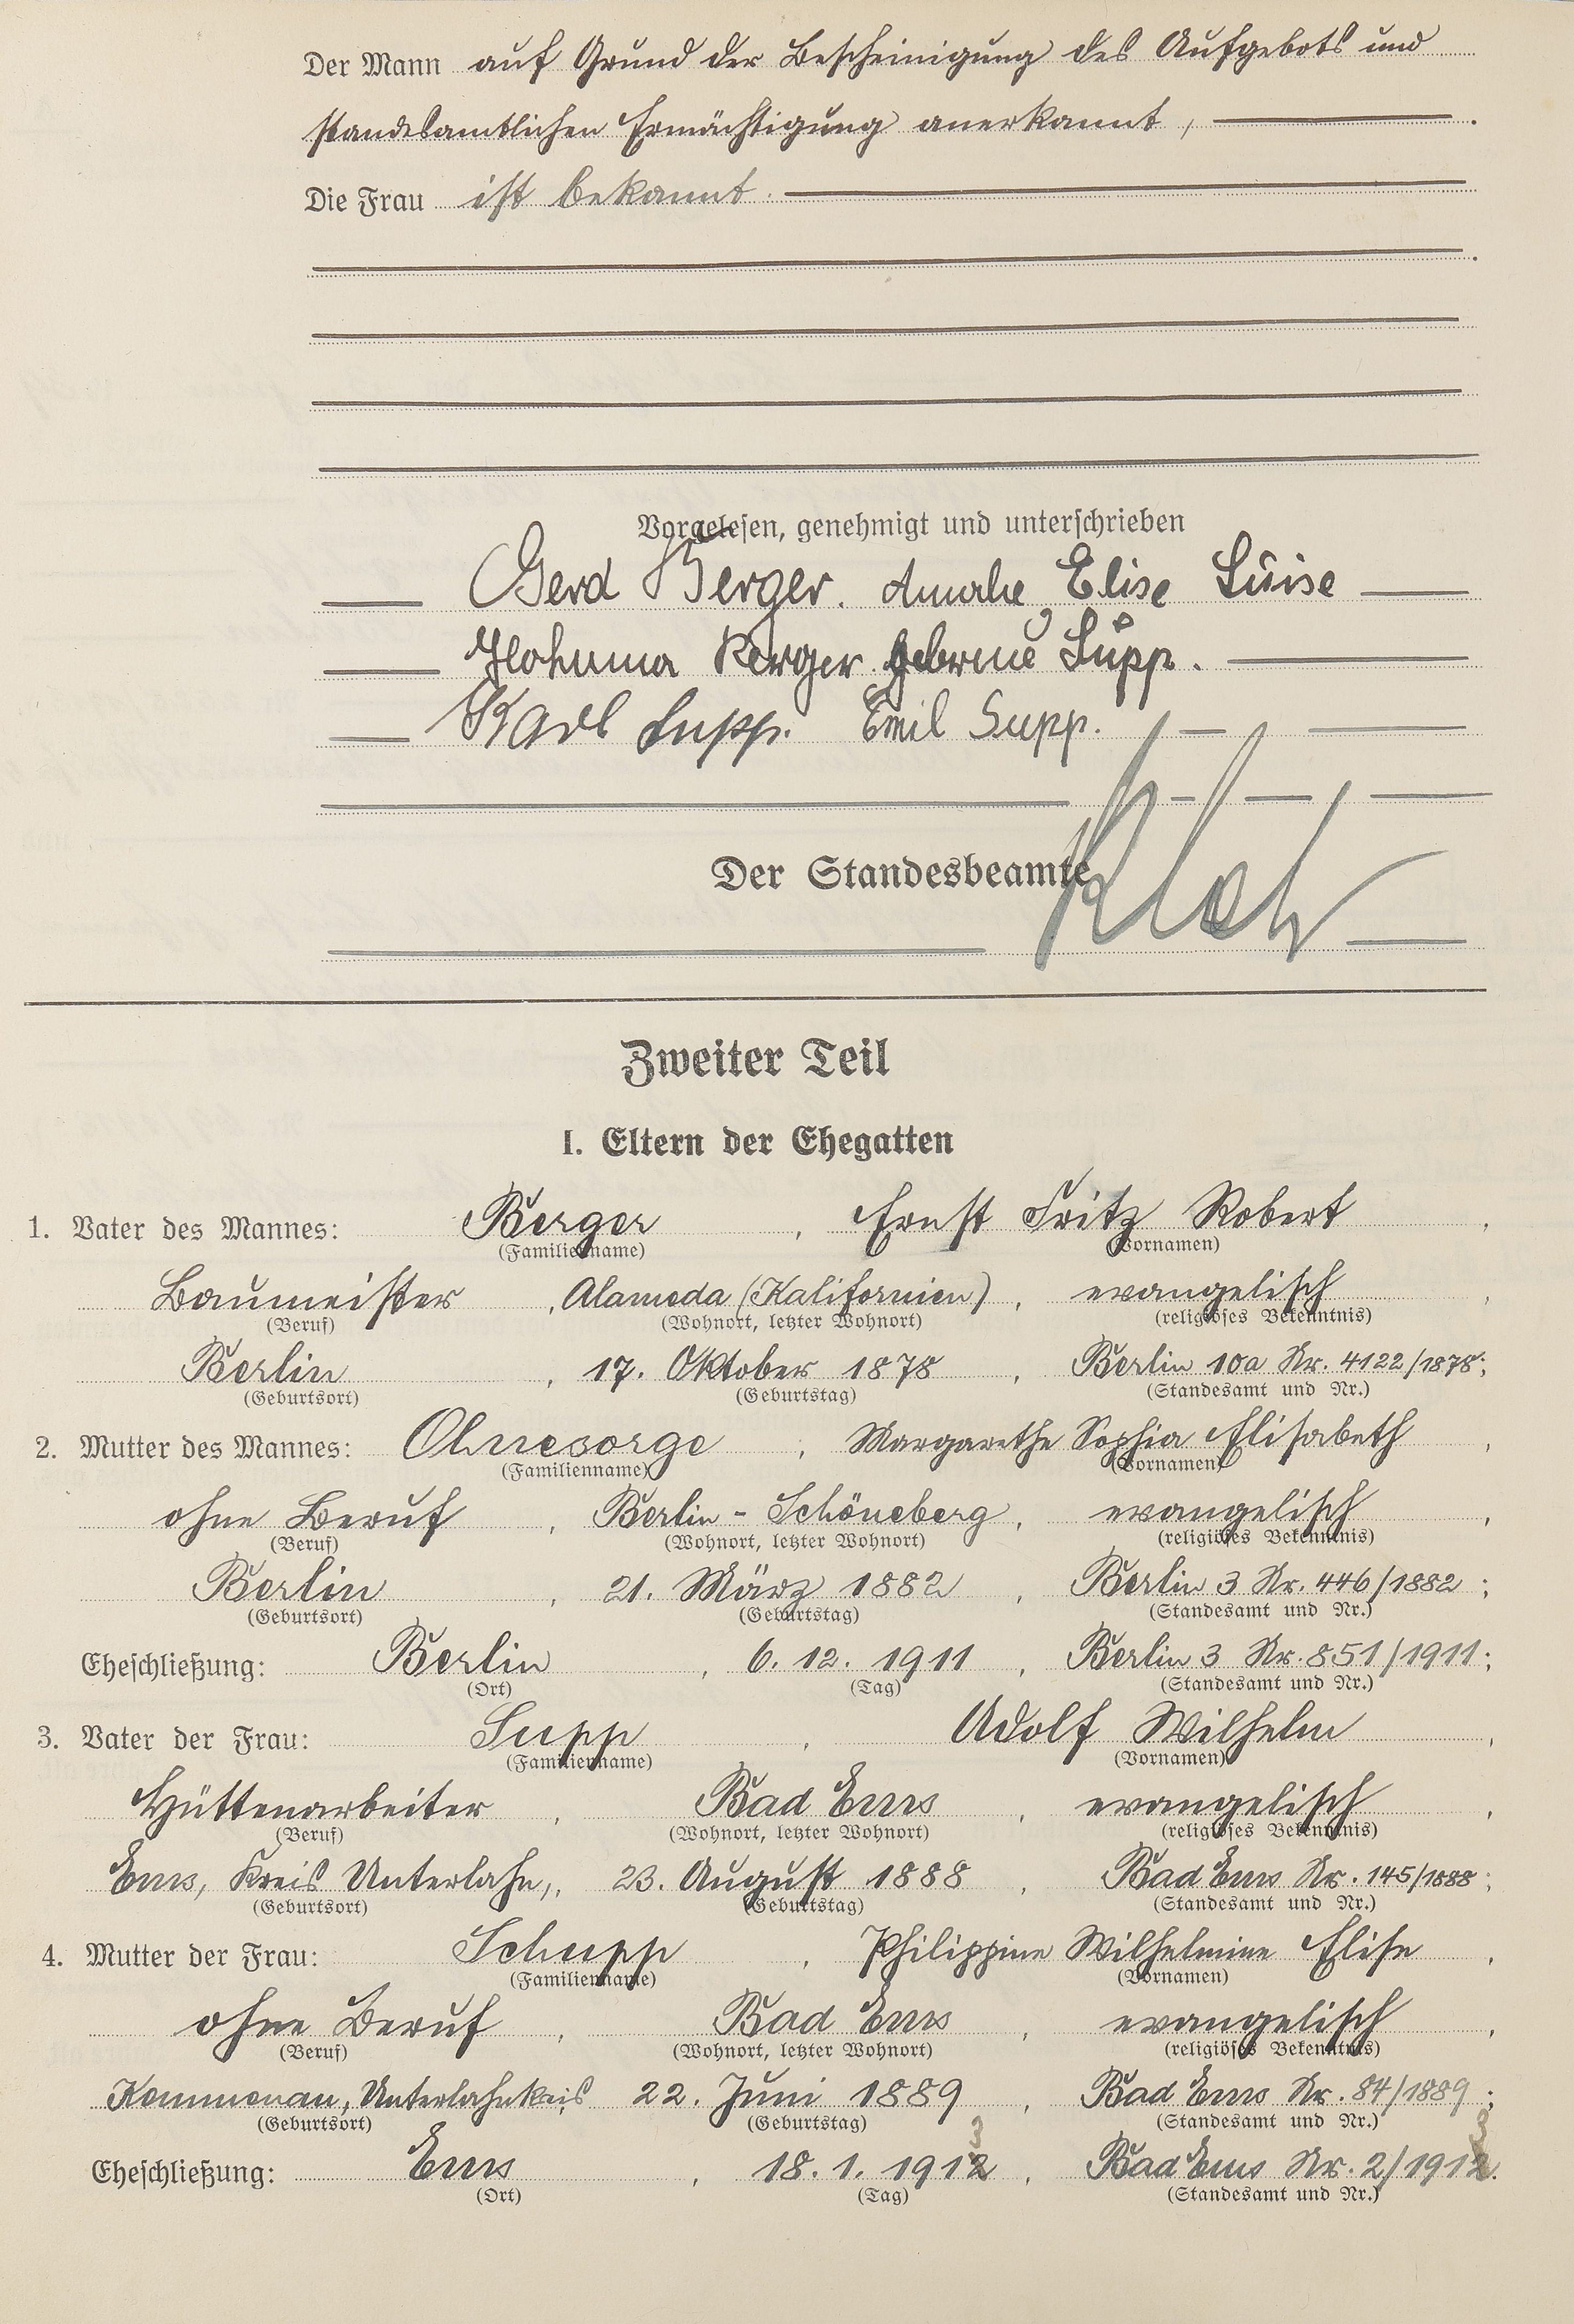 Der Mann auf Grund der Bescheinigung des Aufgebots und
standesamtlichen Ermächtigung anerkannt,
Die Frau ist bekannt.
Vorgelesen, genehmigt und unterschrieben
Gerd Berger. Amalie Elise Luise
Johanna Berger geborene Supp.
Karl Supp. Emil Supp.
Der Standesbeamte
Zweiter Teil
I. Eltern der Ehegatten
1. Vater des Mannes: Berger, Ernst Fritz Robert,
(Familienname) (Vornamen)
Baumeister, Alameda (Kalifornien), evangelisch,
(Beruf) (Wohnort, letzter Wohnort) (religiöses Bekenntnis)
Berlin, 17. Oktober 1878, Berlin 10a Nr. 4122/1878;
(Geburtsort) (Geburtstag) (Standesamt und Nr.)
2. Mutter des Mannes: Ohnesorge, Margarethe Sophia Elisabeth,
(Familienname) (Vornamen)
ohne Beruf, Berlin-Schöneberg, evangelisch,
(Beruf) (Wohnort, letzter Wohnort) (religiöses Bekenntnis)
Berlin, 21. März 1882, Berlin 3 Nr. 446/1882;
(Geburtsort) (Geburtstag) (Standesamt und Nr.)
Eheschließung: Berlin, 6. 12. 1911, Berlin 3 Nr. 851/1911;
(Ort) (Tag) (Standesamt und Nr.)
3. Vater der Frau: Supp, Adolf Wilhelm,
(Familienname) (Vornamen)
Hüttenarbeiter, Bad Ems, evangelisch,
(Beruf) (Wohnort, letzter Wohnort) (religiöses Bekenntnis)
Ems, Kreis Unterlahn, 23. August 1888, Bad Ems Nr. 145/1888;
(Geburtsort) (Geburtstag) (Standesamt und Nr.)
4. Mutter der Frau: Schupp, Philippine Wilhelmine Elise,
(Familienname) (Vornamen)
ohne Beruf, Bad Ems, evangelisch,
(Beruf) (Wohnort, letzter Wohnort) (religiöses Bekenntnis)
Kemmenau, Unterlahnkreis, 22. Juni 1889, Bad Ems Nr. 84/1889;
(Geburtsort) (Geburtstag) (Standesamt und Nr.)
Eheschließung: Ems, 18. 1. 1913, Bad Ems Nr. 2/1913.
(Ort) (Tag) (Standesamt und Nr.)